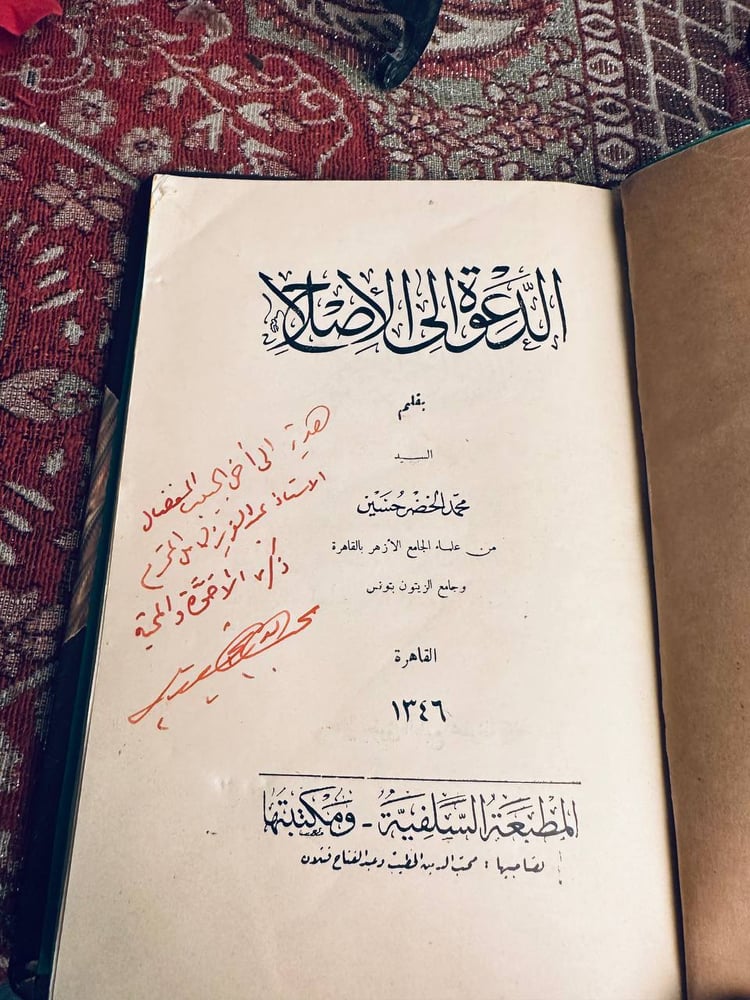 الدَّعْوَة إلى الإِصْلاح
بقلم
السيد
محمّد الخضر حُسَيْن
من علماء الجامع الأزهر بالقاهرة
وجامع الزيتون بتونس
القاهرة
١٣٤٦
المطبعَة السَّلفِيَّة - ومَكتبتها
لصاحبيها : محب الدين الخطيب وعبد الفتاح قتلان
هدية إلى أخي الحبيب المفضال
الاستاذ عبد العزيز المحترم
ذكرى الأخوَّة والمحبة